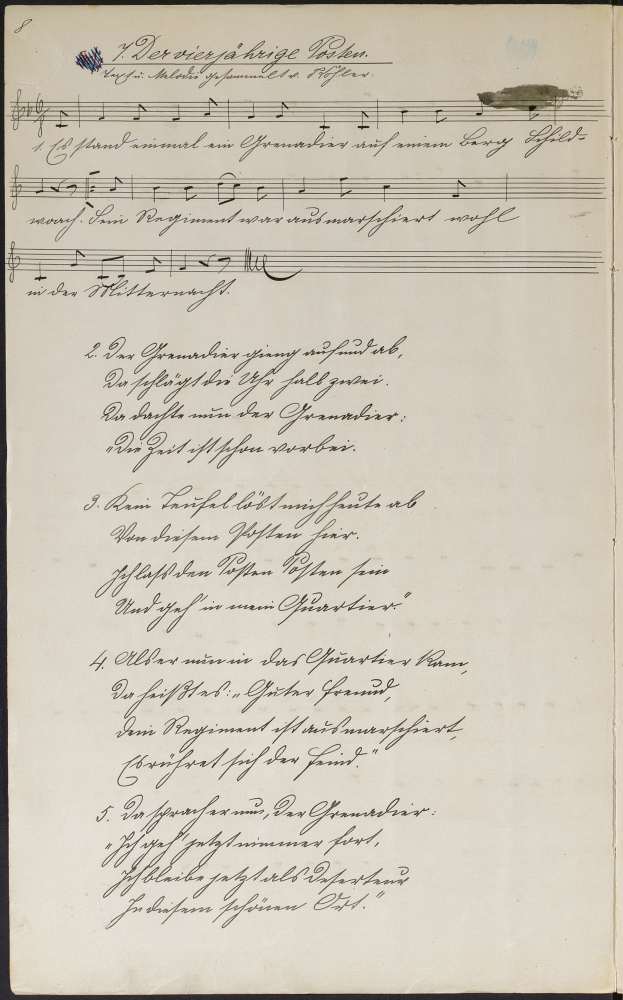 8
7. Der vierjährige Posten.
Text u. Melodie gesammelt v. Köhler.
1. Es stand einmal ein Grenadier auf einem Berg Schild-
woach. Sein Regiment war ausmarschiert wohl
in der Mitternacht.
2. Der Grenadier gieng auf und ab,
Da schlägt die Uhr halb zwei.
Da dachte nun der Grenadier:
„Die Zeit ist schon vorbei.
3. Kein Teufel löst mich heute ab
Von diesem Posten hier.
Ich lass den Posten Posten sein
Und geh' in mein Quartier."
4. Als er nun in das Quartier kam,
Da heißt es: „Guter Freund,
Dein Regiment ist ausmarschiert,
Es rühret sich der Feind."
5. Da sprach er nun, der Grenadier:
„Ich geh' jetzt nimmer fort,
Ich bleibe jetzt als Deserteur
In diesem schönen Ort."